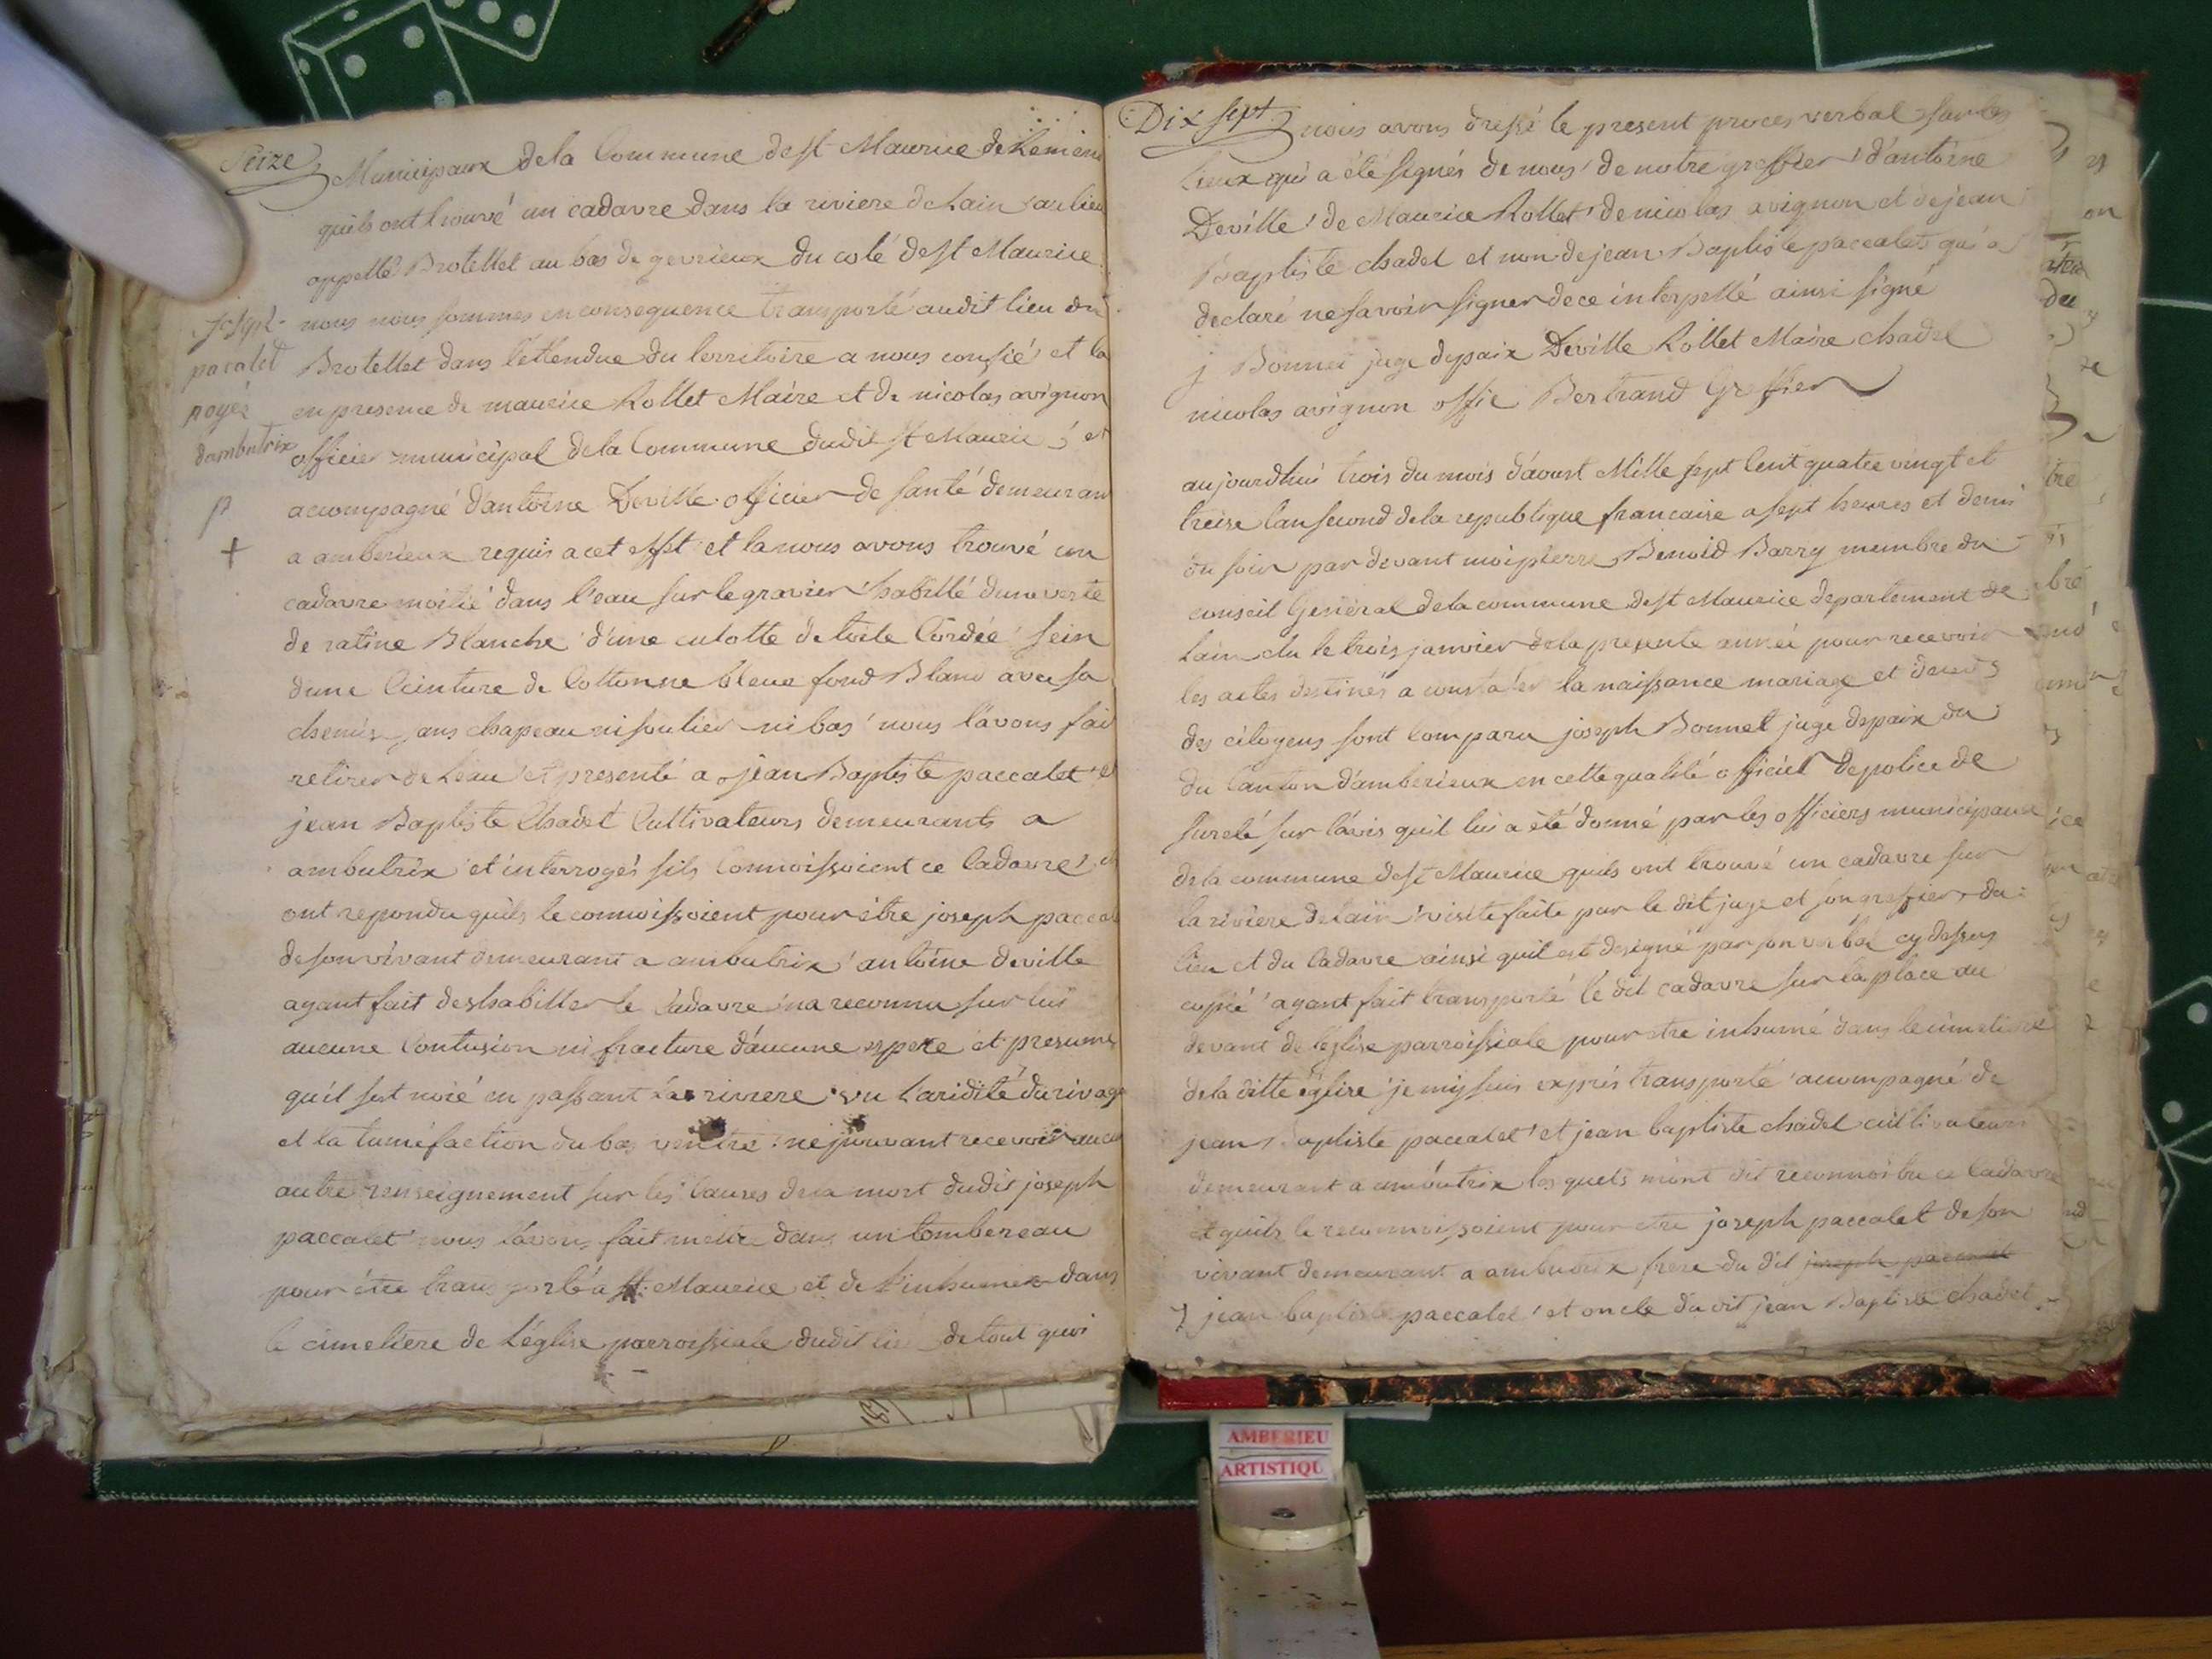 Seize
Municipaux de la Commune de st Maurice de Remens
quils ont trouvé un cadavre dans la riviere de Lain au lieu
appellé Brotellet au bas de gevrieux du coté de st Maurice
nous nous sommes en consequence transporté audit lieu du
Brotellet dans l'ettendue du territoire a nous confié et la
en presence de maurice Rollet Maire et de nicolas avignon
officier municipal de la Commune dudit st Maurice et
accompagné d'antoine Deville officier de santé demeuran
a amberieux requis a cet effet et la nous avons trouvé un
cadavre moitié dans l'eau sur le gravier habillé dune veste
de ratine Blanche d'une culotte de toile Cordée sein
d'une Ceinture de Cottonne bleue fond Blanc avec sa
chemise sans chapeau ni soulier ni bas nous l'avons fait
retirer de Leau et presenté a jean Baptiste paccalet et
jean Baptiste Chadel Cultivateurs demeurants a
ambutrix et interrogés sils Connoissoient ce Cadavre
ont repondu quils le connoissoient pour être joseph paccal
de son vivant demeurant a ambutrix antoine deville
ayant fait deshabiller le Cadavre na reconnu sur lui
aucune Contusion ni fracture d'aucune espece et presume
qu'il sest noié en passant La riviere vu L'aridité du rivage
et la tuméfaction du bas ventre ne pouvant recevoir aucu
autre renseignement sur les Causes de la mort dudit joseph
paccalet nous l'avons fait mettre dans un tombereau
pour être transporté a st Maurice et de l'inhumer dans
le cimetiere de Léglise parroissiale dudit lieu de tout quoi
joseph
pacalet
noyé
dambutrix
+
Dix sept
nous avons dressé le present proces verbal sur les
Lieux qui a été signés de nous de notre greffier d'antoine
Deville de Maurice Rollet de nicolas avignon et de jean
Baptiste chadel et non de jean Baptiste paccalet qui a
declaré ne savoir signer de ce interpellé ainsi signé
j Bonnet juge de paix Deville Rollet Maire chadel
nicolas avignon offic Bertrand Greffier
aujourdhui trois du mois d'aoust Mille sept Cent quatre vingt et
treise lan second de la republique francaise a sept heures et demi
du soir par devant moi pierre Benoid Barry membre du
conseil Général de la commune de st Maurice departement de
Lain elu le trois janvier de la presente année pour recevoir
les actes destinés a constater la naissance mariage et deces
des citoyens sont Comparu joseph Bonnet juge de paix du
du Canton d'amberieux en cette qualité officiel de police de
sureté sur l'avis quil lui a été donné par les officiers municipaux
de la commune de st Maurice quils ont trouvé un cadavre sur
la riviere de Lain visite faite par le dit juge et son greffier du
lieu et du Cadavre ainsi quil est designé par son verbal cy dessus
copié ayant fait transporté le dit cadavre sur la place au
devant de léglise parroissiale pour etre inhumé dans le cimetiere
de la ditte église je my suis exprès transporté accompagné de
jean Baptiste paccalet et jean baptiste chadel cultivateurs
demeurant a ambutrix les quels m'ont dit reconnoitre ce Cadavre
et quils le reconnoissoient pour etre joseph paccalet de son
vivant demeurant a ambutrix frere du dit joseph paccalet
jean baptiste paccalet et oncle du dit jean Baptiste chadel
AMBERIEU
ARTISTIQU